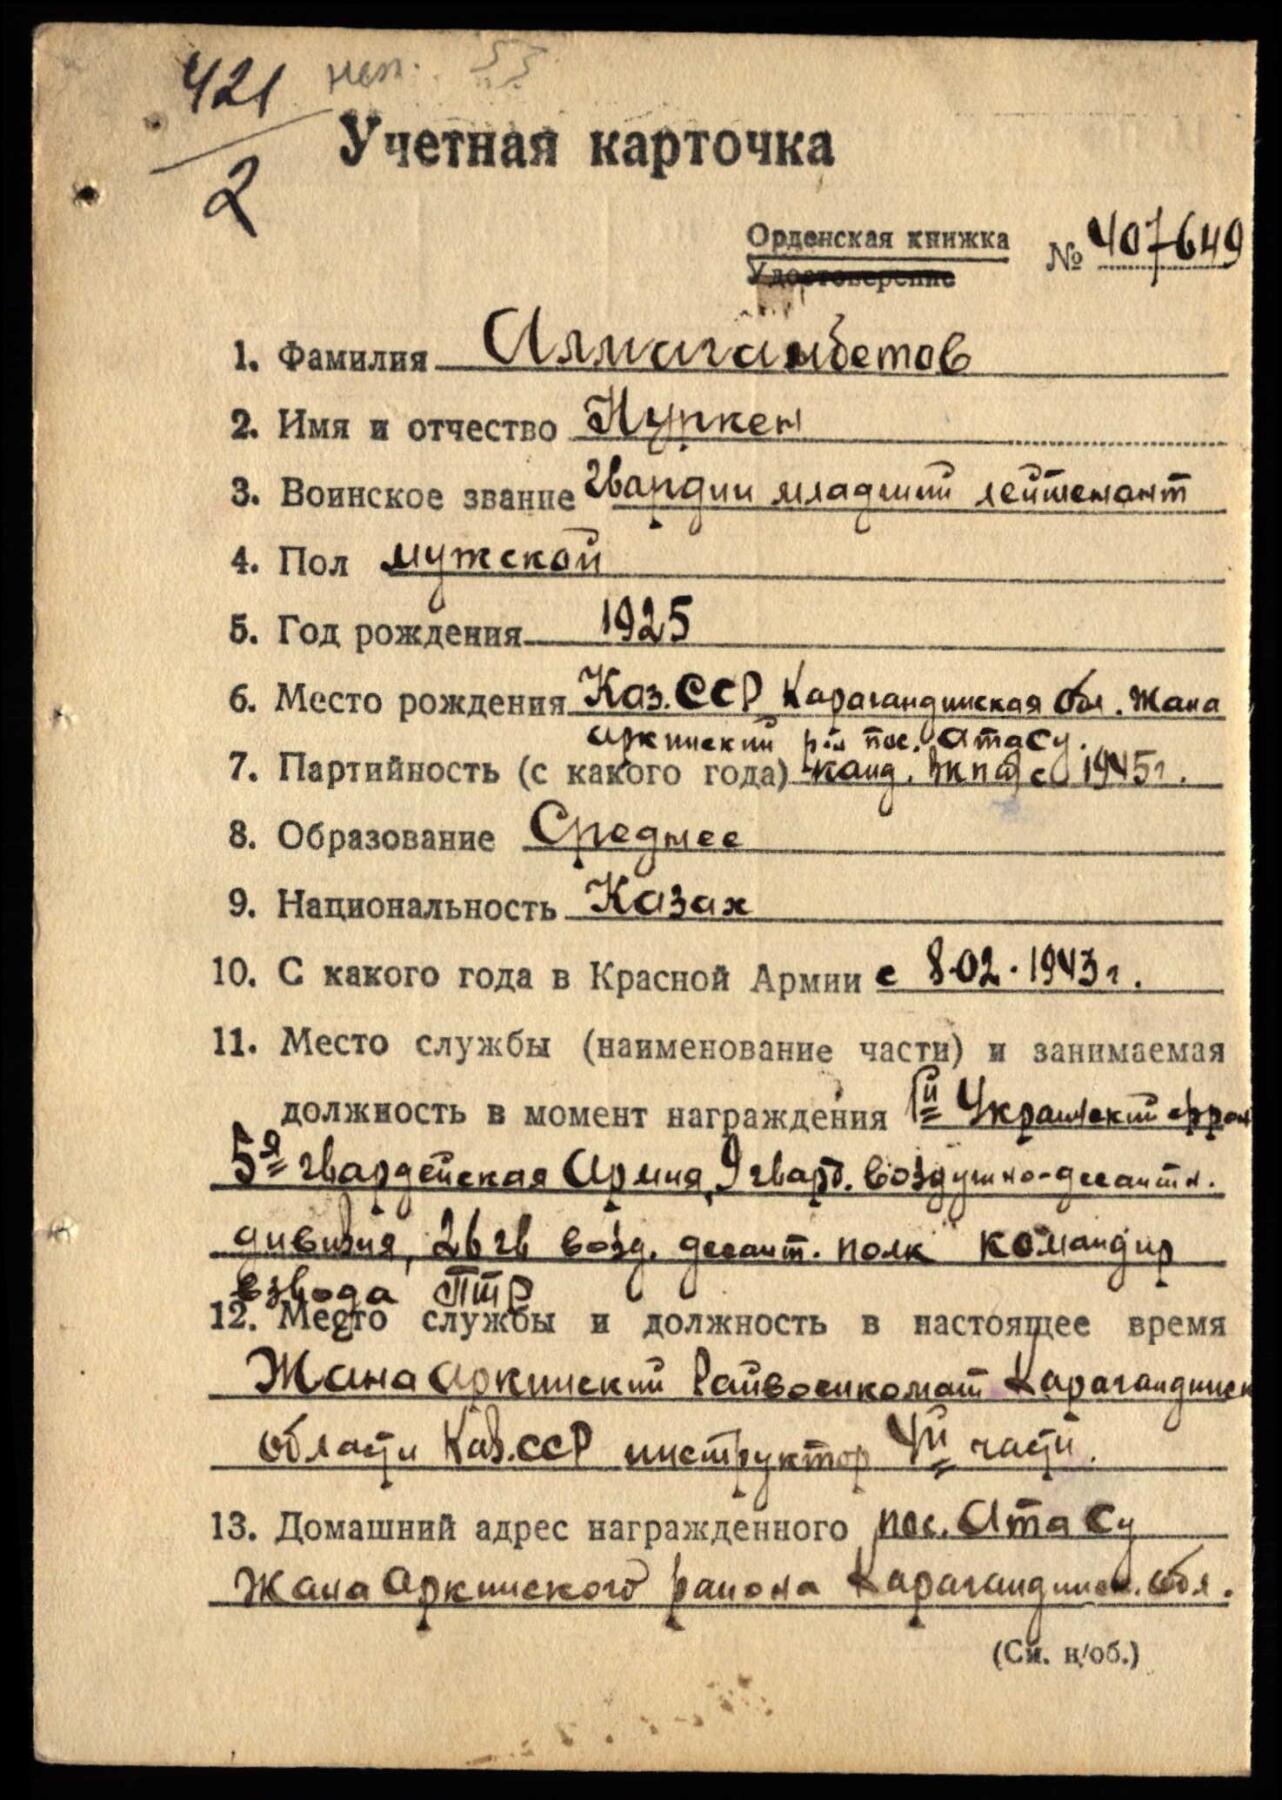 421 неп. 53
2
Учетная карточка
Орденская книжка № 407649
Удостоверение
1. Фамилия Алмагамбетов
2. Имя и отчество Нуркен
3. Воинское звание Гвардии младший лейтенант
4. Пол мужской
5. Год рождения 1925
6. Место рождения Каз.ССР Карагандинская обл. Жана
аркинский р-н пос. Атасу.
7. Партийность (с какого года) канд. ВКП(б) с 1945г.
8. Образование Среднее
9. Национальность Казах
10. С какого года в Красной Армии с 8.02.1943г.
11. Место службы (наименование части) и занимаемая
должность в момент награждения 1й Украинский фрон
5я гвардейская Армия, 9 гвард. воздушно-десантн.
дивизия, 26 гв возд. десант. полк командир
взвода ПТР
12. Место службы и должность в настоящее время
Жана Аркинский Райвоенкомат Карагандинск
области Каз.ССР инструктор 4й части.
13. Домашний адрес награжденного пос. Атасу
Жана Аркинского района Карагандинск. обл.
(См. н/об.)